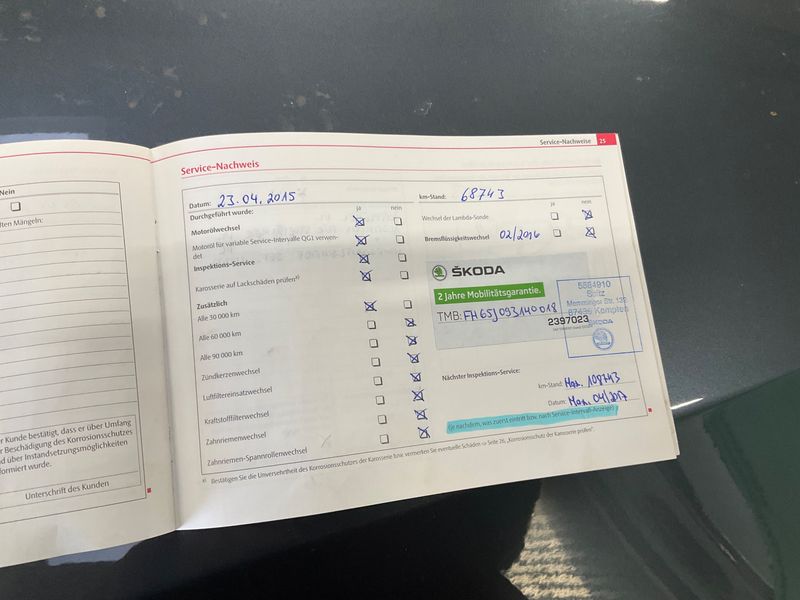 Nein
lten Mängeln:
r Kunde bestätigt, dass er über Umfang
r Beschädigung des Korrosionsschutzes
d über Instandsetzungsmöglichkeiten
formiert wurde.
Unterschrift des Kunden
Service-Nachweise 25
Service-Nachweis
Datum: 23.04.2015
km-Stand: 68743
Durchgeführt wurde: ja nein
Motorölwechsel
Motoröl für variable Service-Intervalle QG1 verwen-
det
Inspektions-Service
Karosserie auf Lackschäden prüfen
Zusätzlich
Alle 30 000 km
Alle 60 000 km
Alle 90 000 km
Zündkerzenwechsel
Luftfiltereinsatzwechsel
Kraftstofffilterwechsel
Zahnriemenwechsel
Zahnriemen-Spannrollenwechsel
ja nein
Wechsel der Lambda-Sonde
Bremsflüssigkeitswechsel 02/2016
ŠKODA
2 Jahre Mobilitätsgarantie.
TMB: FH65J093140018
2397023
5584910
Seitz
Memminger Str. 132
87439 Kempten
ŠKODA
Nächster Inspektions-Service:
km-Stand: Max. 108743
Datum: Max. 04/2017
(je nachdem, was zuerst eintritt bzw. nach Service-Intervall-Anzeige)
a) Bestätigen Sie die Unversehrtheit des Korrosionsschutzes der Karosserie bzw. vermerken Sie eventuelle Schäden ⇒ Seite 26, „Korrosionsschutz der Karosserie prüfen“.